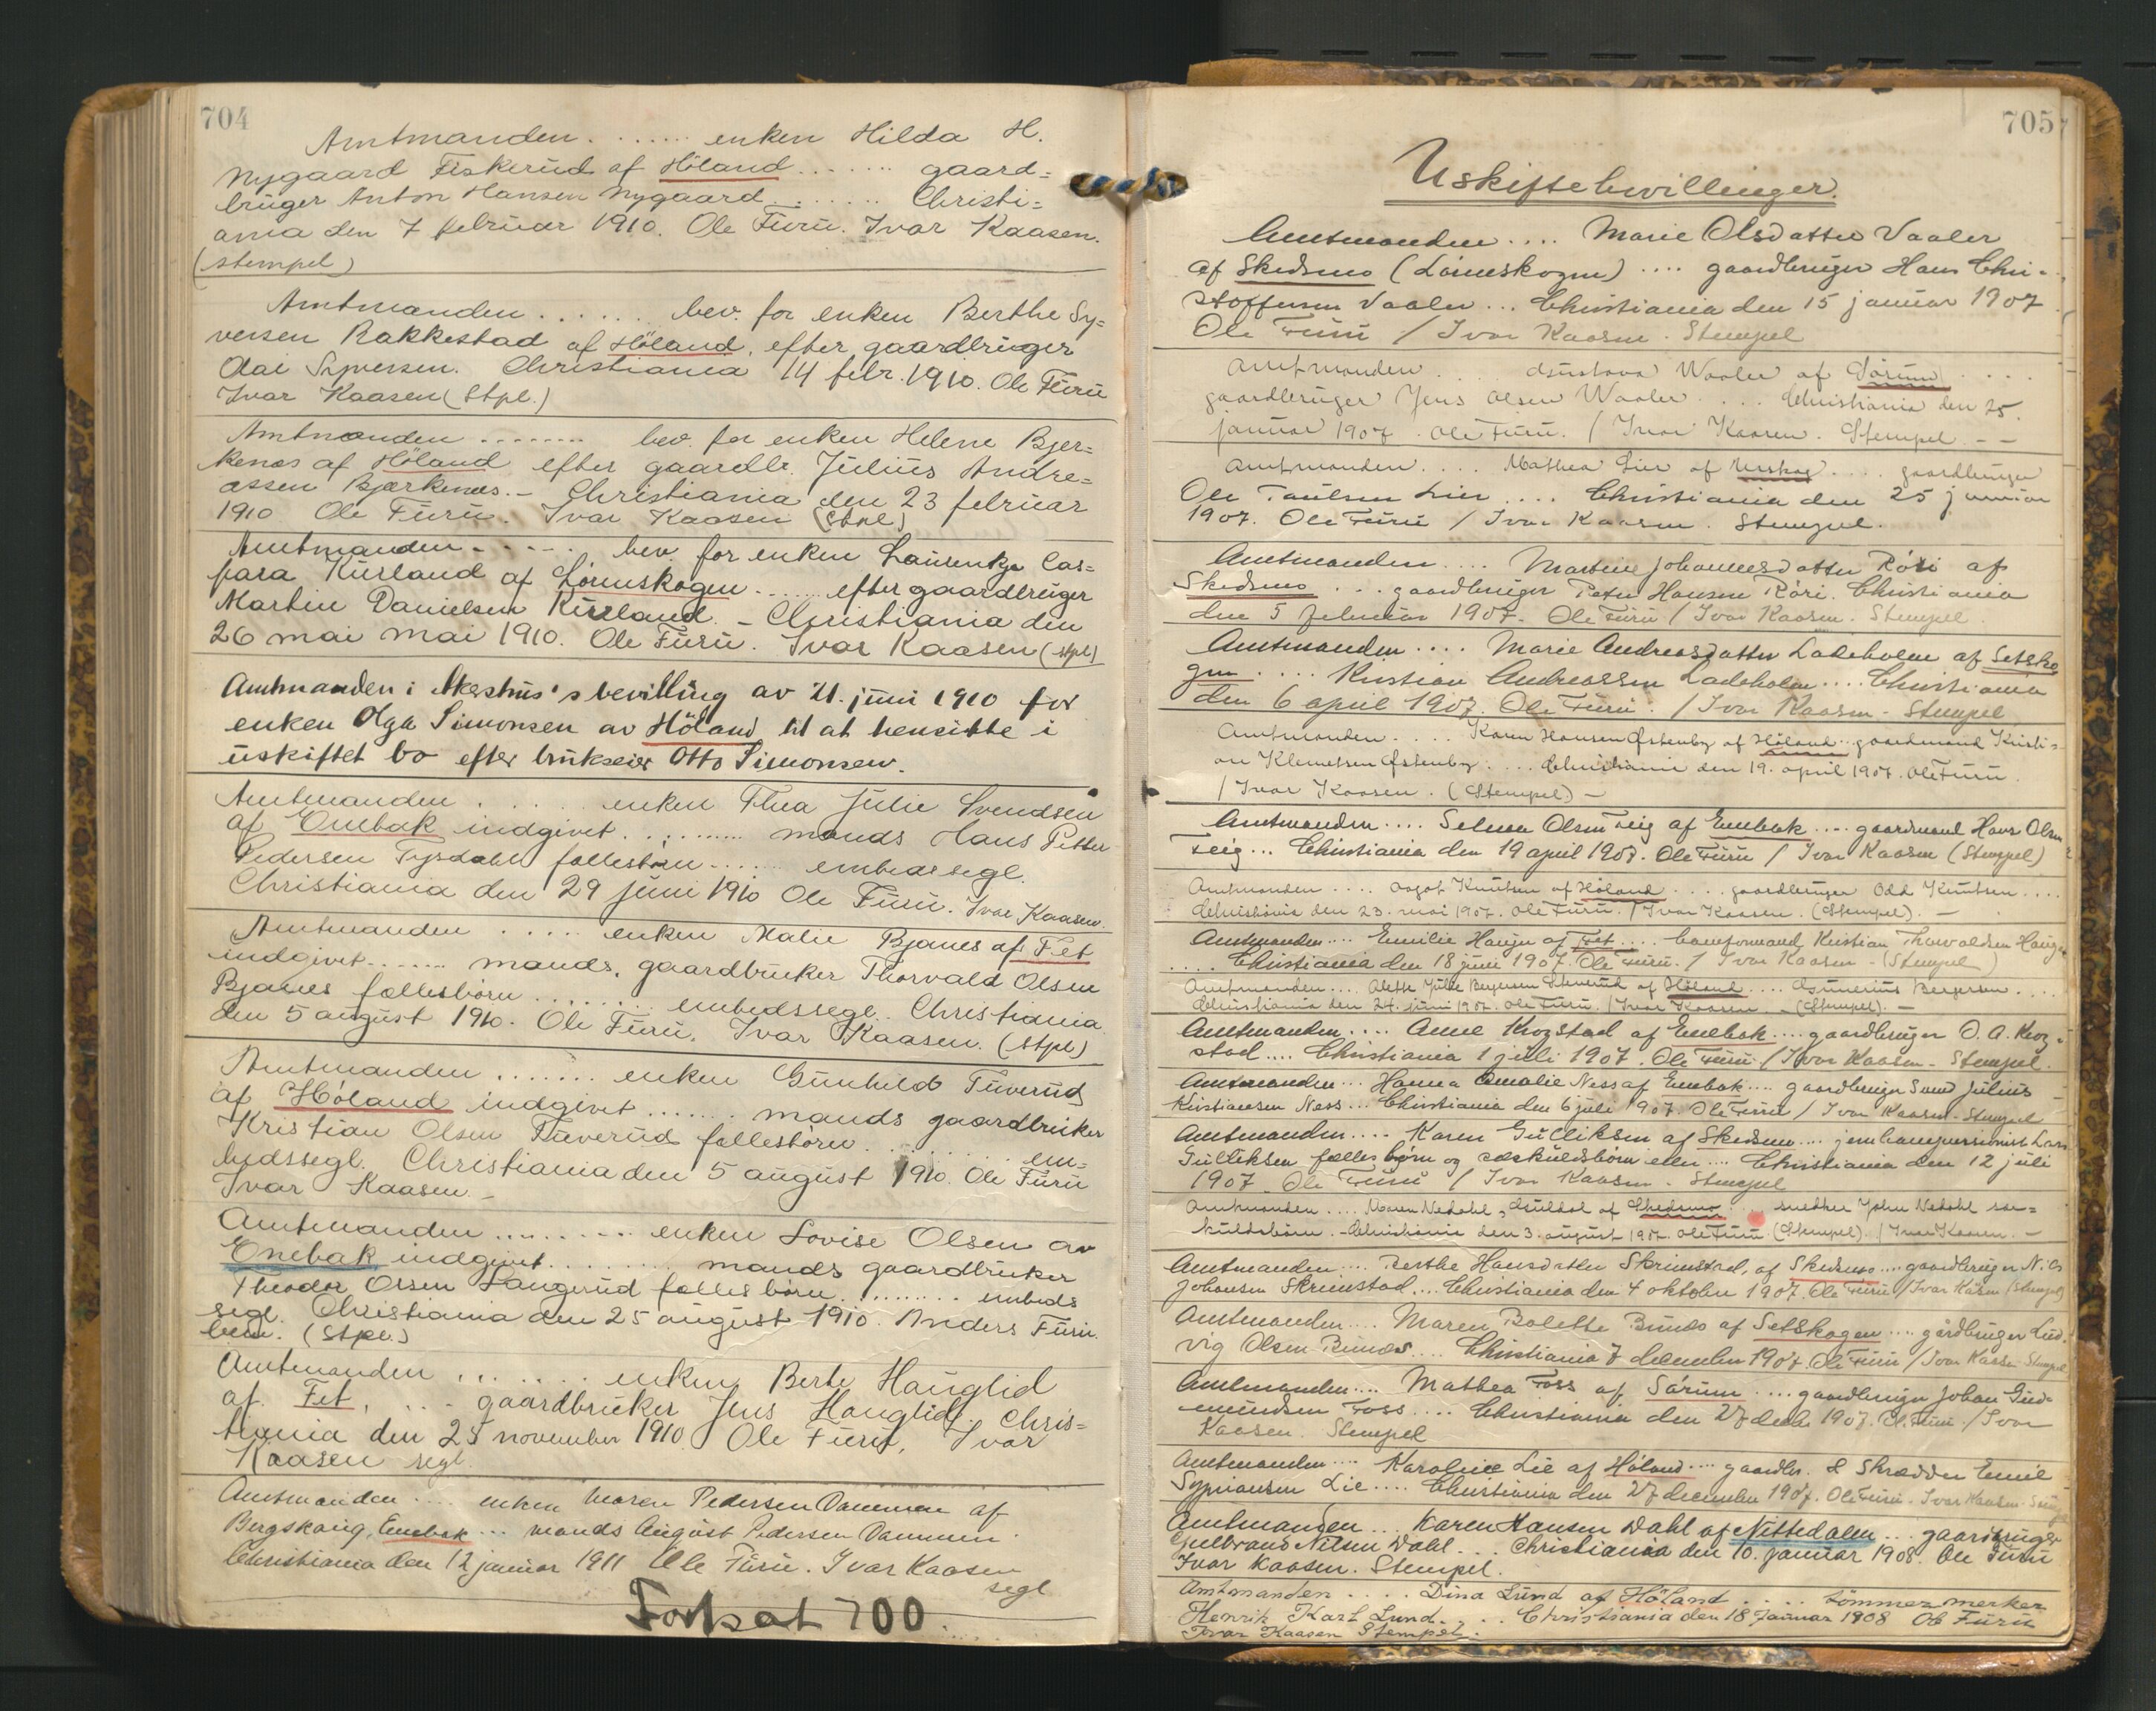 704
Amtmanden ...... enken Hilda H.
Nygaard Fiskerud af Höland ...... gaard=
brüger Anton Hansen Nygaard ...... Christi=
ania den 7 februar 1910. Ole Furu. Ivar Kaasen.
(stempel)
Amtmanden ...... bev. for enken Berthe Sy=
versen Rakkestad af Höland, efter gaardbrüger
Syversen. Christiania 14 febr. 1910. Ole Furu
Ivar Kaasen (Stpl.)
Amtmanden ........ bev. for enken Helene Bjer=
kenæs af Höland efter gaardbr. Julius Andre=
assen Bjerkenæs. - Christiania den 23 februar
1910 Ole Furu. Ivar Kaasen (Stpl)
Amtmanden ...... bev for enken Laurentze Cas=
para Kurland af Lörenskogen ..... efter gaardbrüger
Martin Danielsen Kurland. - Christiania den
26 mai mai 1910. Ole Furu. Ivar Kaasen (stpl)
Amtmanden i Akershus's bevilling av 21. juni 1910 for
enken Olga Simonsen av Höland til at hensitte i
uskiftet bo efter brukseier Otto Simonsen.
Amtmanden ..... enken Thea Julie Svendsen
af Enebak indgivet .......... mands Hans Petter
Pedersen Tysdahl fællesbörn ..... embedssegl.
Christiania den 29 juni 1910 Ole Furu. Ivar Kaasen.
Amtmanden ..... enken Malie Bjanes af Fet
indgivet ....... mands, gaardbruker Thorvald Olsen
Bjanes fællesbörn ........ embedssegl. Christiania
den 5 august 1910. Ole Furu. Ivar Kaasen. (Stpl)
Amtmanden ....... enken Gunhild Tuverud
af Höland indgivet ....... mands gaardbruker
Kristian Olsen Tuverud fællesbörn ........ em=
bedssegl. Christiania den 5 august 1910. Ole Furu
Ivar Kaasen. -
Amtmanden ......... enken Lovise Olsen av
Enebak indgivet ........ mands gaardbruker
Theodor Olsen Langerud fælles börn ......... embeds
segl. Christiania den 25 august 1910. Anders Furu
(Stpl.)
Amtmanden ....... enken Berte Hauglid
af Fet, ... gaardbruker Jens Hauglid. Chris=
tiania den 25 november 1910. Ole Furu, Ivar
Kaasen segl.
Amtmanden .... enken Maren Pedersen Dammen af
Bergskaug, Enebak ... mands August Pedersen Dammen
Christiania den 12 januar 1911 Ole Furu. Ivar Kaasen
segl
Forts at 700.
705
Uskiftebevillinger.
Amtmanden .... Marie Olsdatter Vaaler
af Skedsmo (Lörenskogen) .... gaardbruger Hans Chri-
stoffersen Vaaler ... Christiania den 15 januar 1907
Ole Furu / Ivar Kaasen. Stempel
Amtmanden ... Gustava Waaler af Sörum ....
gaardbruger Jens Olsen Waaler .... Christiania den 25.
januar 1907. Ole Furu. / Ivar Kaasen. Stempel. - -
Amtmanden .... Mathea Lier af Urskog .... gaardbruger
Ole Paulsen Lier .... Christiania den 25 januar
1907. Ole Furu / Ivar Kaasen. Stempel.
Amtmanden .... Martine Johannesdatter Röri af
Skedsmo .... gaardbruger Peter Hansen Röri. Christiania
den 5 februar 1907. Ole Furu / Ivar Kaasen. Stempel.
Amtmanden .... Marie Andreasdatter Ladeholm af Setsko
gen .... Kristian Andreassen Ladeholm .... Christiania
den 6 april 1907. Ole Furu. / Ivar Kaasen - Stempel
Amtmanden .... Karen Hansen Østenby af Höland .. gaardmand Kristi=
an Klemetsen Østenby .... Christiania den 19. april 1907. Ole Furu.
/ Ivar Kaasen. (Stempel) -
Amtmanden .... Selma Olsen Teig af Enebak .... gaardmand Hans Olsen
Teig ... Christiania den 19 april 1907. Ole Furu / Ivar Kaasen (Stempel)
Amtmanden .... Aagot Knutsen af Höland .... gaardbruger Odd Knutsen ....
Christiania den 23. mai 1907. Ole Furu. / Ivar Kaasen. (Stempel). -
Amtmanden .... Emilie Haugen af Fet .... Kristian Thorvaldsen Haugen
.... Christiania den 18 juni 1907. Ole Furu. / Ivar Kaasen - (Stempel)
Amtmanden .... Julie Bergersen af Höland .... Bergersen ....
Christiania den 24. juni 1907. Ole Furu. / Ivar Kaasen. - (Stempel). -
Amtmanden .... Anne Krogstad af Enebak .... gaardbruger O. A. Krog-
stad .... Christiania 1 juli 1907. Ole Furu / Ivar Kaasen - Stempel.
Amtmanden ... Hanna Amalie Ness af Enebak .... gaardbruger Julius
Kristiansen Ness ... Christiania den 6 juli 1907. Ole Furu / Ivar Kaasen - Stempel
Amtmanden .... Karen Gulliksen af Skedsmo .... Lars
Gulliksen fælles börn og særkuldsbörn eller .... Christiania den 12 juli
1907. Ole Furu / Ivar Kaasen - Stempel
Amtmanden .... Maren Nedahl, af Skedsmo .... snedker John Nedahl sær=
kuldsbörn. - Christiania den 3. august 1907. Ole Furu (Stempel). / Ivar Kaasen. -
Amtmanden .... Berthe Hansdatter Skrimstad, af Skedsmo .... gaardbruger
Johansen Skrimstad .... Christiania den 4 oktober 1907. Ole Furu / Ivar Kaasen (Stempel)
Amtmanden .... Maren Bolette Bunes af Setskogen .... gårdbruger Lud-
vig Olsen Bunes .... Christiania 7 december 1907. Ole Furu / Ivar Kaasen Stempel
Amtmanden .... Mathea Foss af Sörum .... gaardbruger Johan Gud-
mundsen Foss .... Christiania den 27 decb. 1907. Ole Furu. / Ivar
Kaasen. Stempel
Amtmanden .... Karoline Lie af Höland .... gaardbr. & Skrædder Emil
Sypriansen Lie .... Christiania den 27 december 1907. Ole Furu. Ivar Kaasen.
Amtmanden ... Karen Hansen Dahl af Nittedalen ... gaardbruger
Gulbrand Nilsen Dahl ... Christiania den 10. januar 1908. Ole Furu
Ivar Kaasen. Stempel.
Amtmanden .... Dina Lund af Höland .... tömmermerker
Henrik Karl Lund .... Christiania den 18 Januar 1908 Ole Furu
Ivar Kaasen Stempel.